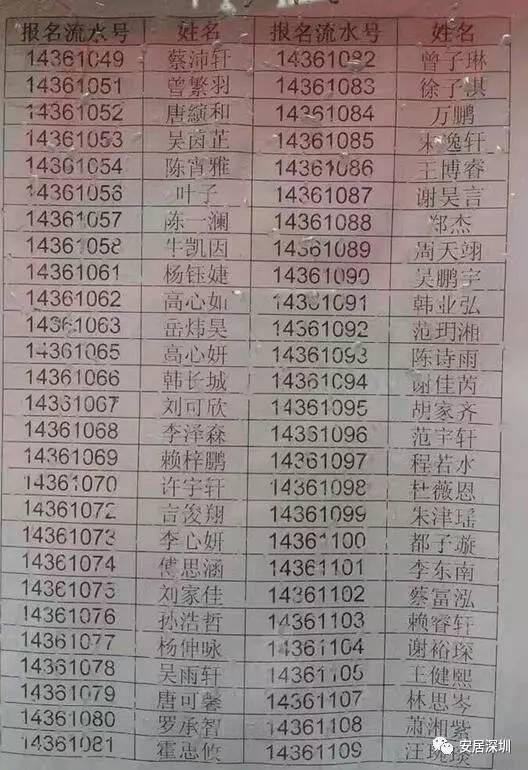 报名流水号 姓名 报名流水号 姓名
14361049 蔡沛轩 14361082 曾子琳
14361051 曾繁羽 14361083 徐子淇
14361052 唐纈和 14361084 万鹏
14361053 吴茵芷 14361085 宋逸轩
14361054 陈宵雅 14361086 王博睿
14361056 叶子 14361087 谢昊言
14361057 陈一澜 14361088 郑杰
14361058 牛凯因 14361089 周天翊
14361061 杨钰婕 14361090 吴鹏宇
14361062 高心如 14361091 韩业弘
14361063 岳炜昊 14361092 范玥湘
14361065 高心妍 14361093 陈诗雨
14361066 韩长城 14361094 谢佳芮
14361067 刘可欣 14361095 胡家齐
14361068 李泽森 14361096 范宇轩
14361069 赖梓鹏 14361097 程若水
14361070 许宇轩 14361098 杜薇恩
14361072 言俊翔 14361099 朱津瑶
14361073 李心妍 14361100 都子璇
14361074 傅思涵 14361101 李东南
14361075 刘家佳 14361102 蔡富泓
14361076 孙浩哲 14361103 赖睿轩
14361077 杨伸咏 14361104 谢裕琛
14361078 吴雨轩 14361105 王健熙
14361079 唐可馨 14361107 林思岑
14361080 罗承智 14361108 萧湘紫
14361081 霍思攸 14361109 汪琬
安居深圳